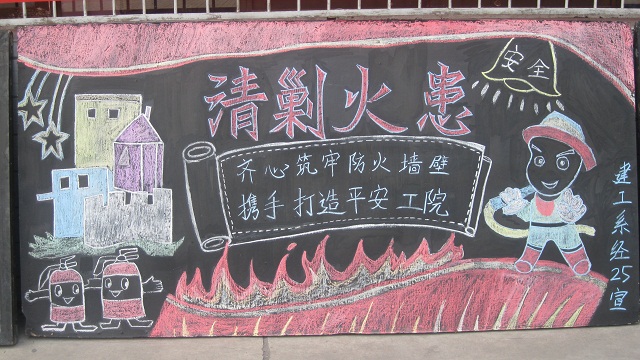 清剿火患
安全
齐心筑牢防火墙壁
携手打造平安工院
建工系经25宣